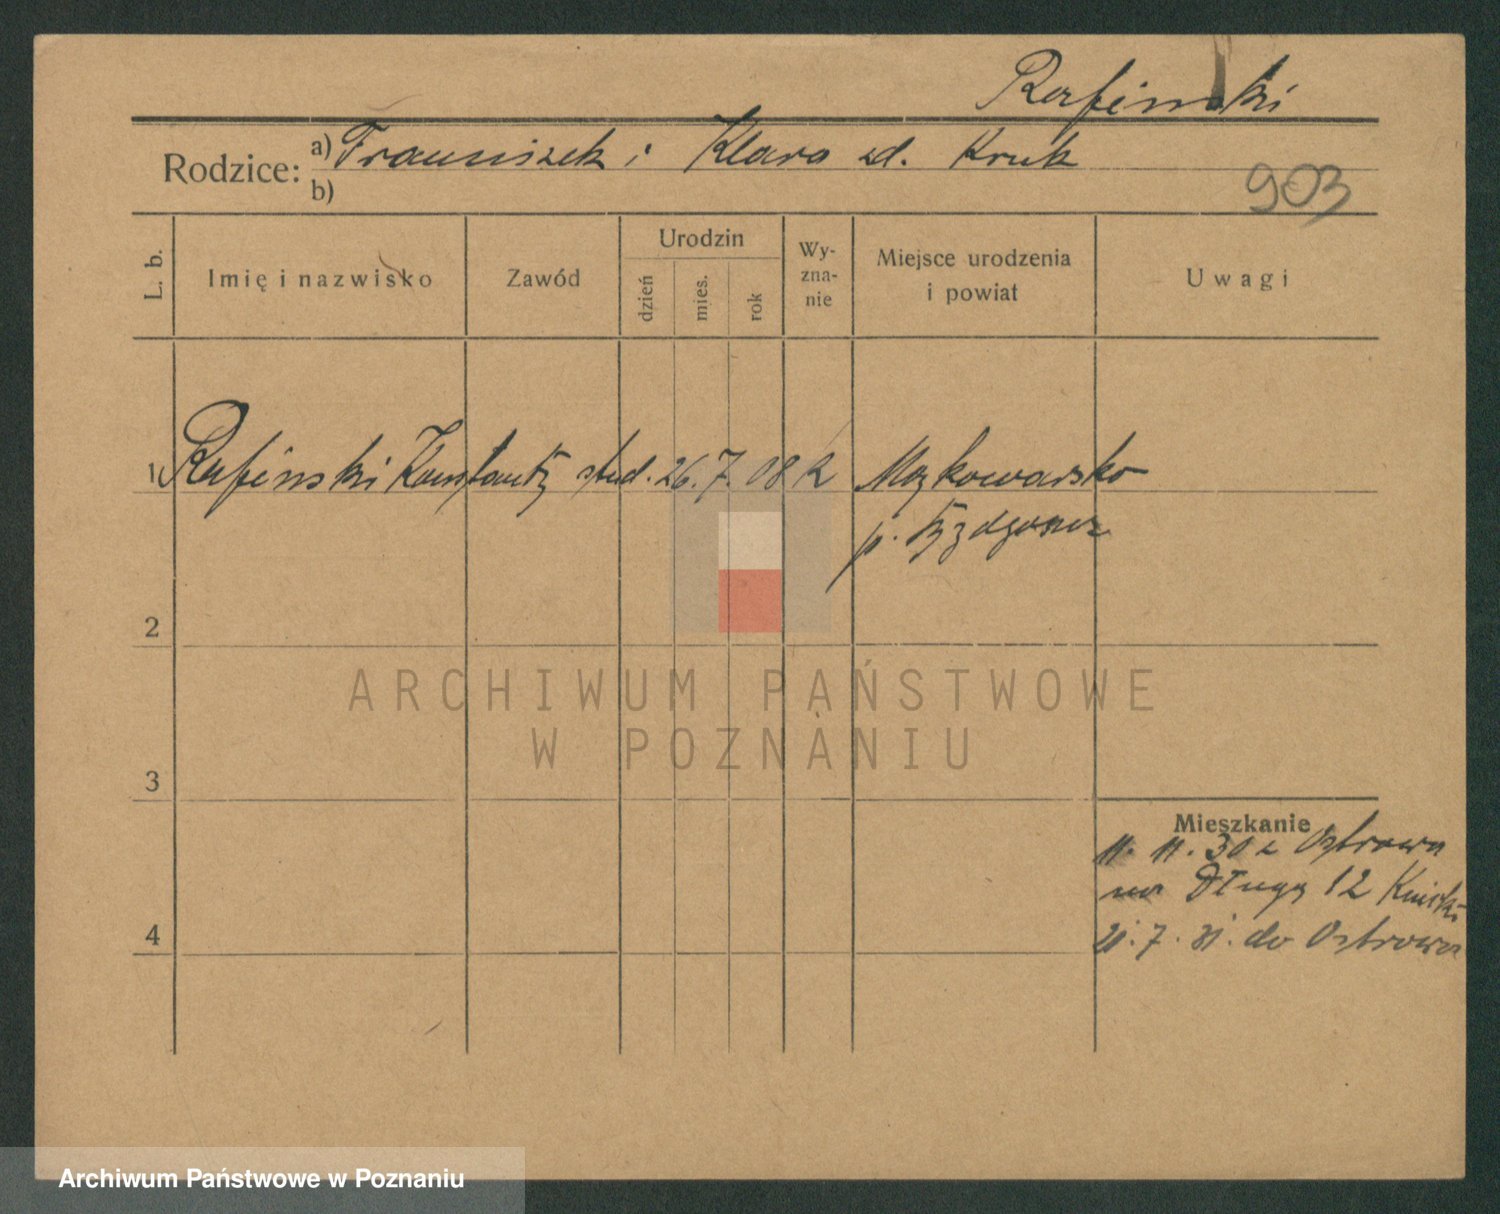 Rafiński
Rodzice: a) Franciszek i Klara zd. Kruk
b)
903
L. b.
Imię i nazwisko
Zawód
Urodzin
dzień
mies.
rok
Wy-
zna-
nie
Miejsce urodzenia
i powiat
Uwagi
1 Rafiński Konstanty stud. 26. 7. 08 k
p. Bydgoszcz
2
ARCHIWUM PAŃSTWOWE
W POZNANIU
3
Mieszkanie
11. 11. 30 z Ostrowa
na Długą 12
7. 31. do Ostrowa
4
Archiwum Państwowe w Poznaniu